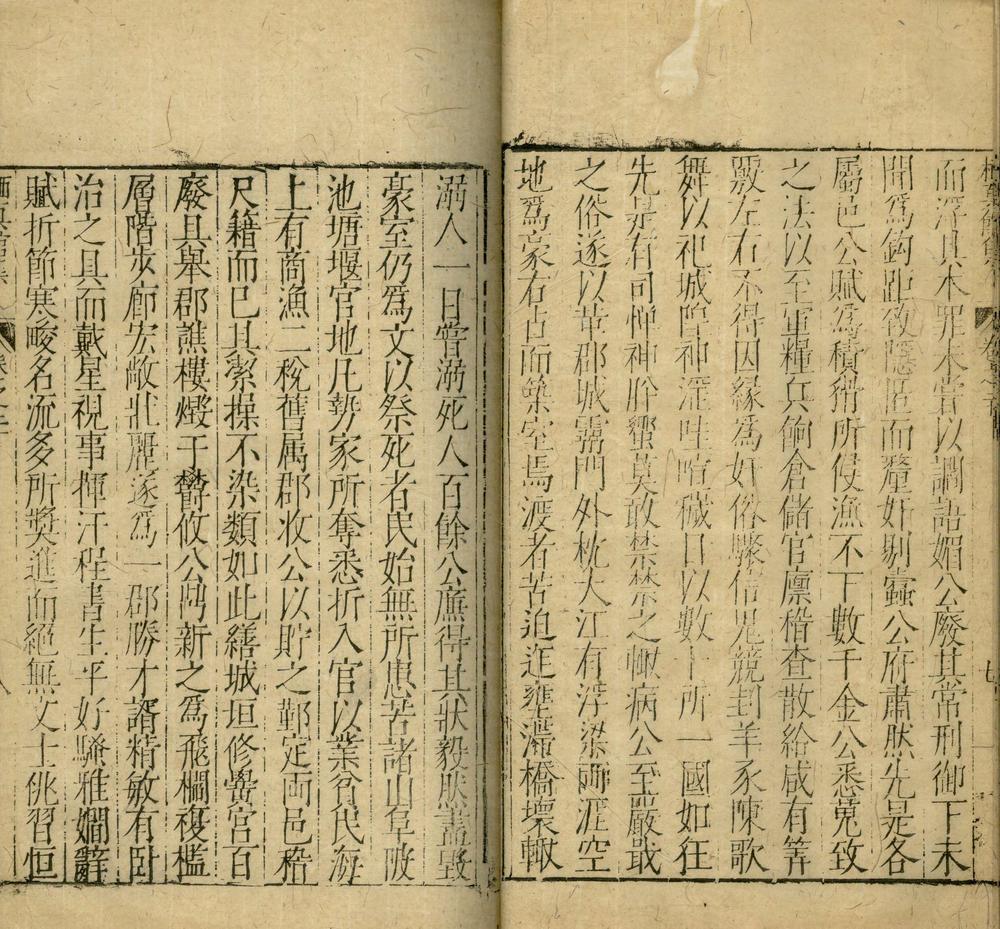 而浮其本罪未嘗以讕語媚公廢其常刑御下未
聞爲鉤距致隱匿而釐奸剔蠹公府肅然先是各
屬邑公賦爲積猾所侵漁不下數千金公悉蒐致
之法以至軍糧兵餉倉儲官廪稽查散給咸有筭
覈左右不得因緣爲奸俗驟信鬼競封羊豕陳歌
舞以祀城隍神淫哇喧穢日以數十所一國如狂
先是有司憚神肸蠁莫敢禁禁之輙病公至嚴戢
之俗遂以革郡城霱門外枕大江有浮梁兩涯空
地爲豪右占而築室焉渡者苦迫迮壅滯橋壞輙
溺人一日嘗溺死人百餘公廉得其狀毅然盡毀
豪室仍爲文以祭死者民始無所患苦諸山阜陂
池塘堰官地凡勢家所奪悉折入官以業貧民海
上有商漁二稅舊属郡收公以貯之鄞定両邑稽
尺籍而已其潔操不染類如此繕城垣修黌宮百
廢具舉郡譙樓燬于欎攸公鼎新之爲飛欄複檻
層階步廊宏敞壯麗遂爲一郡勝才諝精敏有卧
治之具而戴星視事揮汗程書生平好騷雅嫺辭
賦折節寒畯名流多所獎進而絕無文士佻習恒